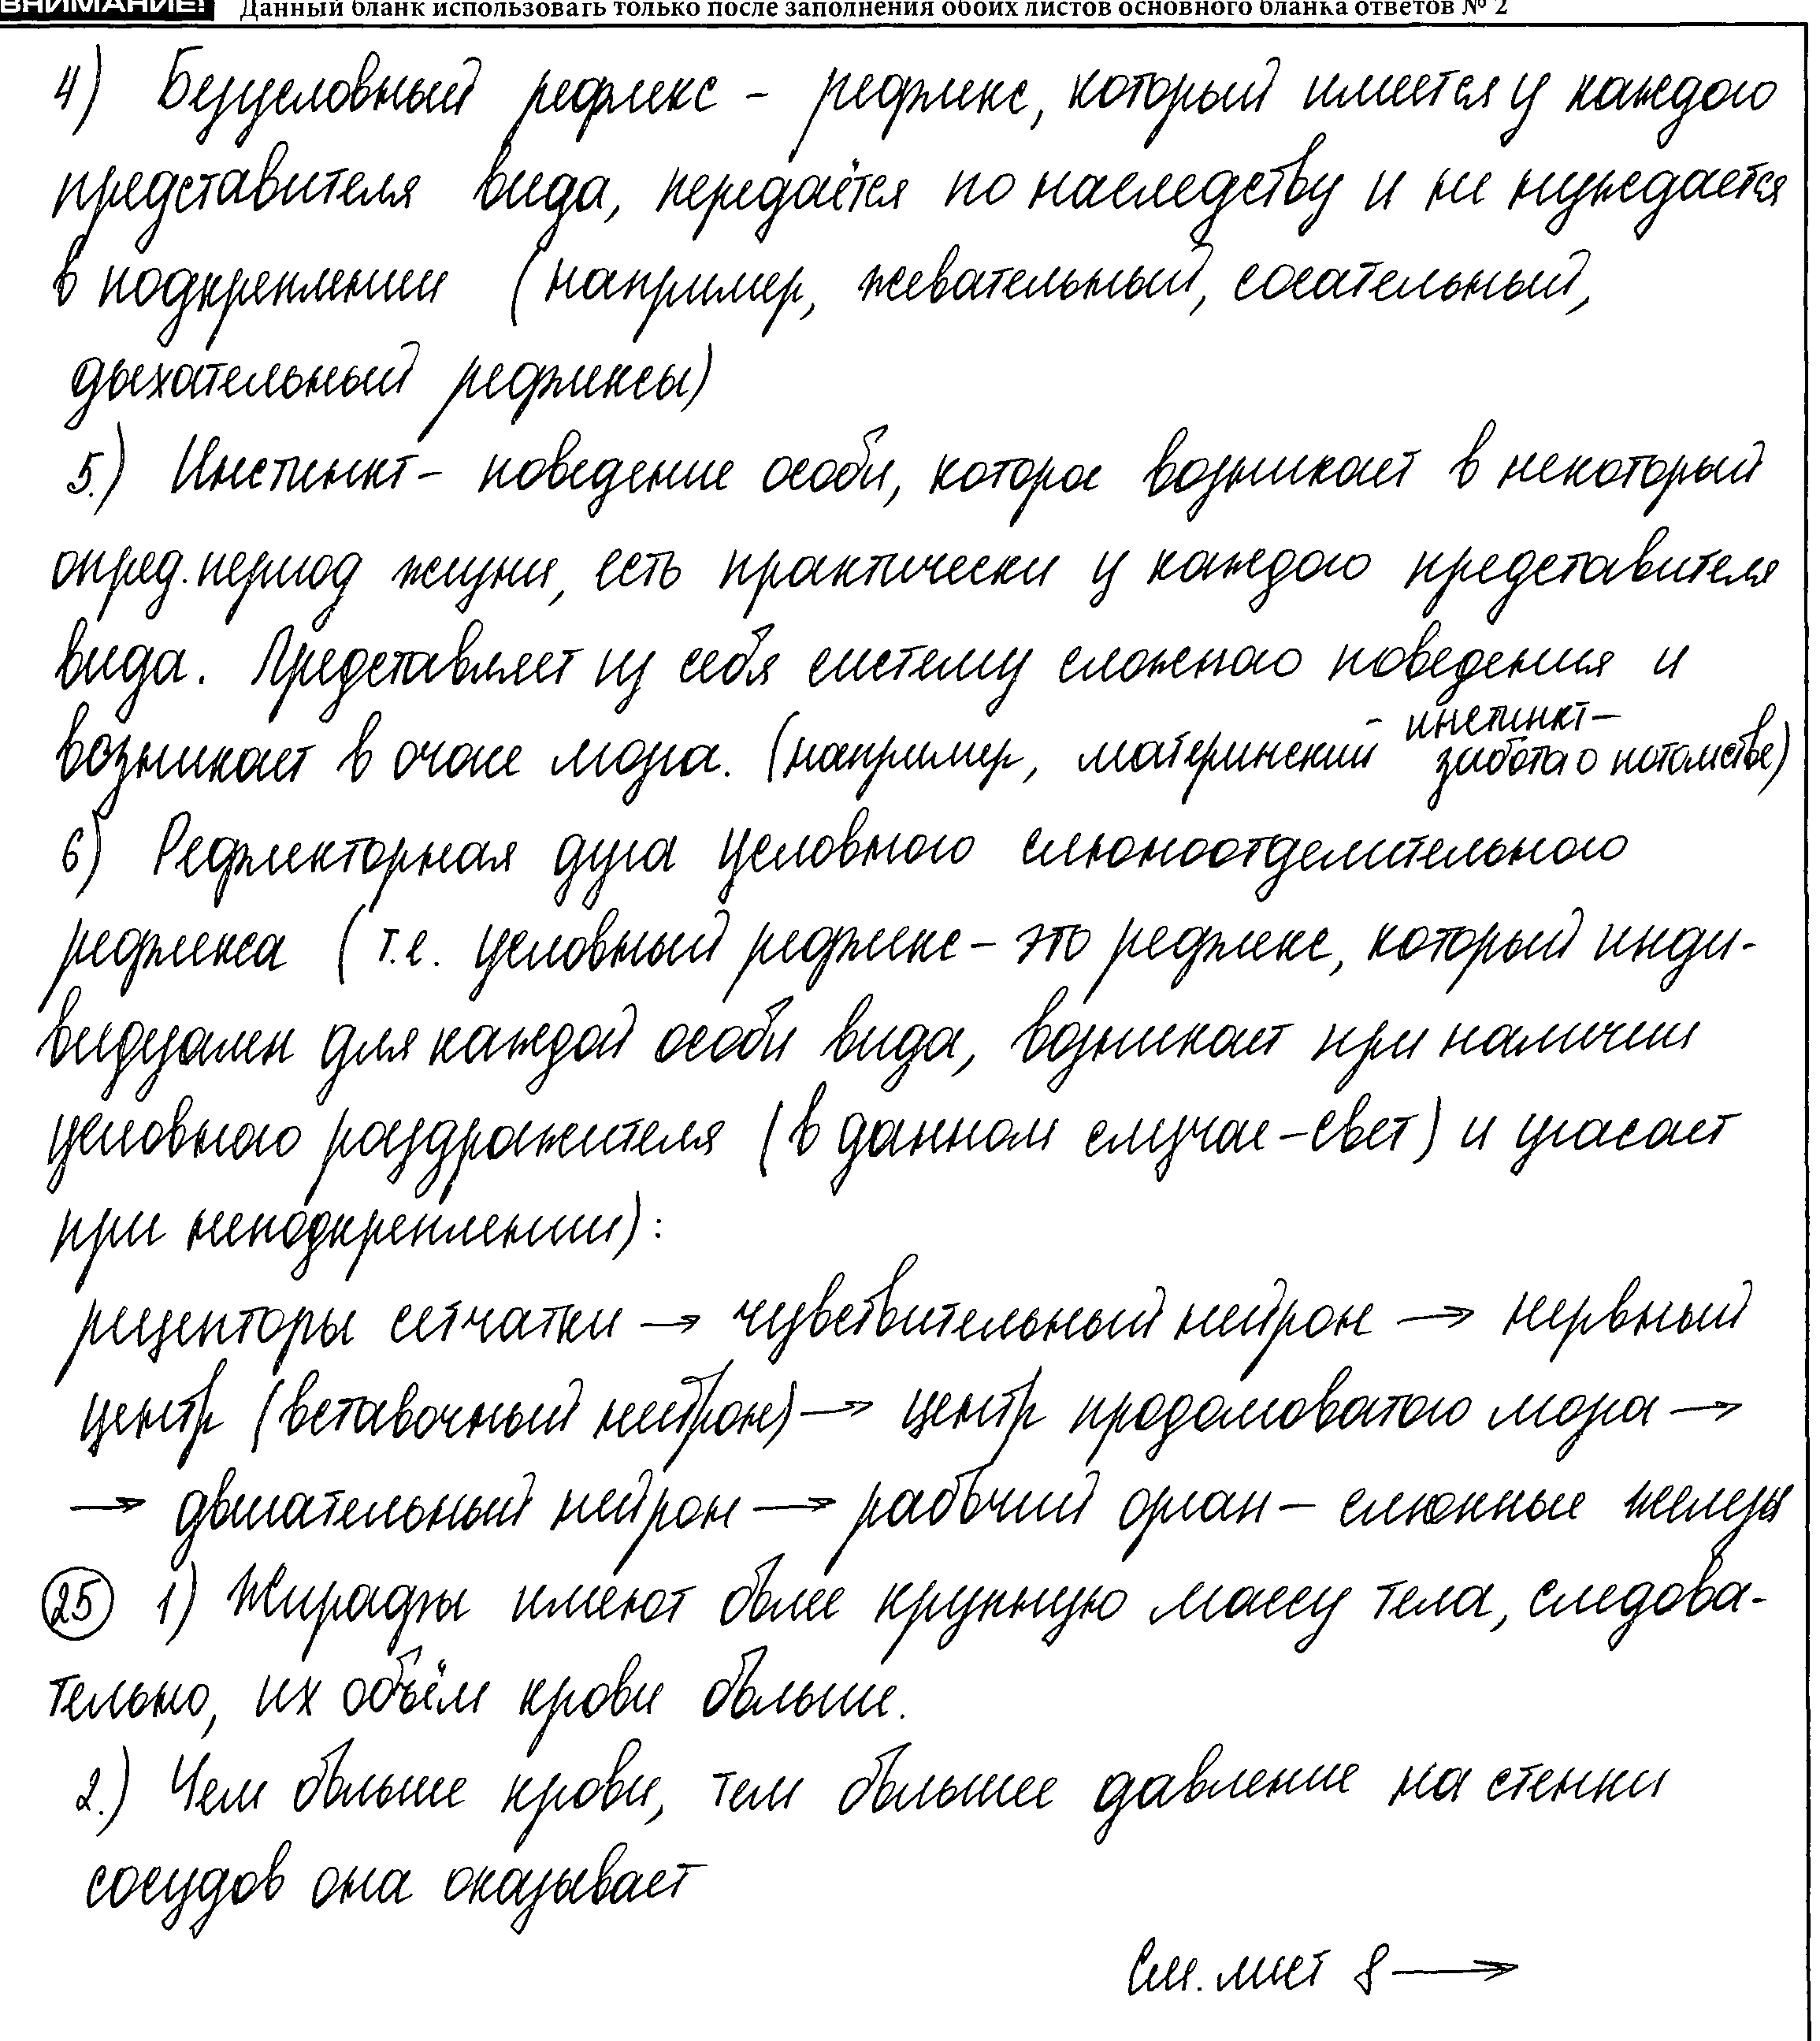 ВНИМАНИЕ! Данный бланк использовать только после заполнения обоих листов основного бланка ответов № 2
4) Безусловный рефлекс - рефлекс, который имеется у каждого
представителя вида, передаётся по наследству и не нуждается
в подкреплении (например, жевательный, сосательный,
дыхательный рефлексы)
5.) Инстинкт - поведение особи, которое возникает в некоторый
опред. период жизни, есть практически у каждого представителя
вида. Представляет из себя систему сложного поведения и
возникает в очаге мозга. (например, материнский - инстинкт -
забота о потомстве)
6) Рефлекторная дуга условного слюноотделительного
рефлекса (т.е. условный рефлекс - это рефлекс, который инди-
видуален для каждой особи вида, возникает при наличии
условного раздражителя (в данном случае - свет) и угасает
при неподкреплении):
рецепторы сетчатки → чувствительный нейрон → нервный
центр (вставочный нейрон) → центр продолговатого мозга →
→ двигательный нейрон → рабочий орган - слюнные железы
25 1) Жирафы имеют более крупную массу тела, следова-
тельно, их объём крови больше.
2.) Чем больше крови, тем большее давление на стенки
сосудов она оказывает
См. лист 8 →